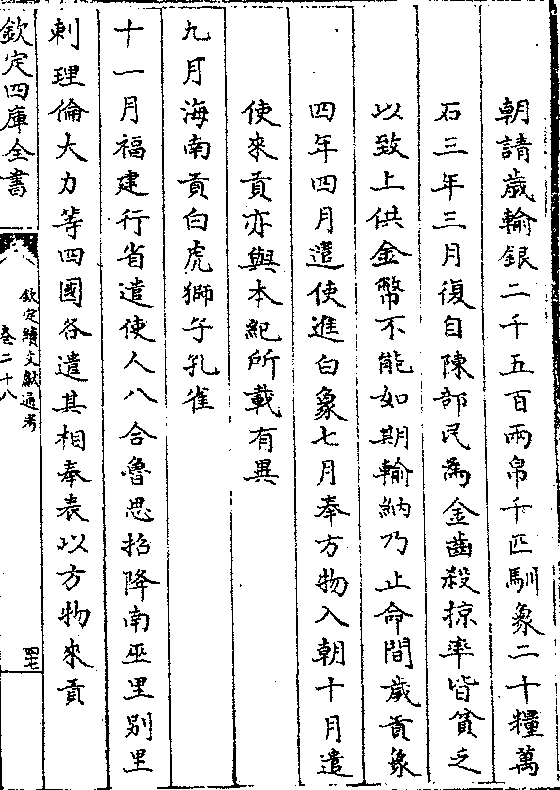 朝請歲輸銀二千五百兩帛千匹馴象二十糧萬
石三年三月復自陳部民為金齒殺掠率皆貧乏
以致上供金幣不能如期輸納乃止命間歲貢象
四年四月遣使進白象七月奉方物入朝十月遣
使來貢亦與本紀所載有異
九月海南貢白虎獅子孔雀
十一月福建行省遣使人八合魯思招降南巫里别里
剌理倫大力等四國各遣其相奉表以方物來貢
欽定四庫全書
欽定續文獻通考
卷二十八
四七